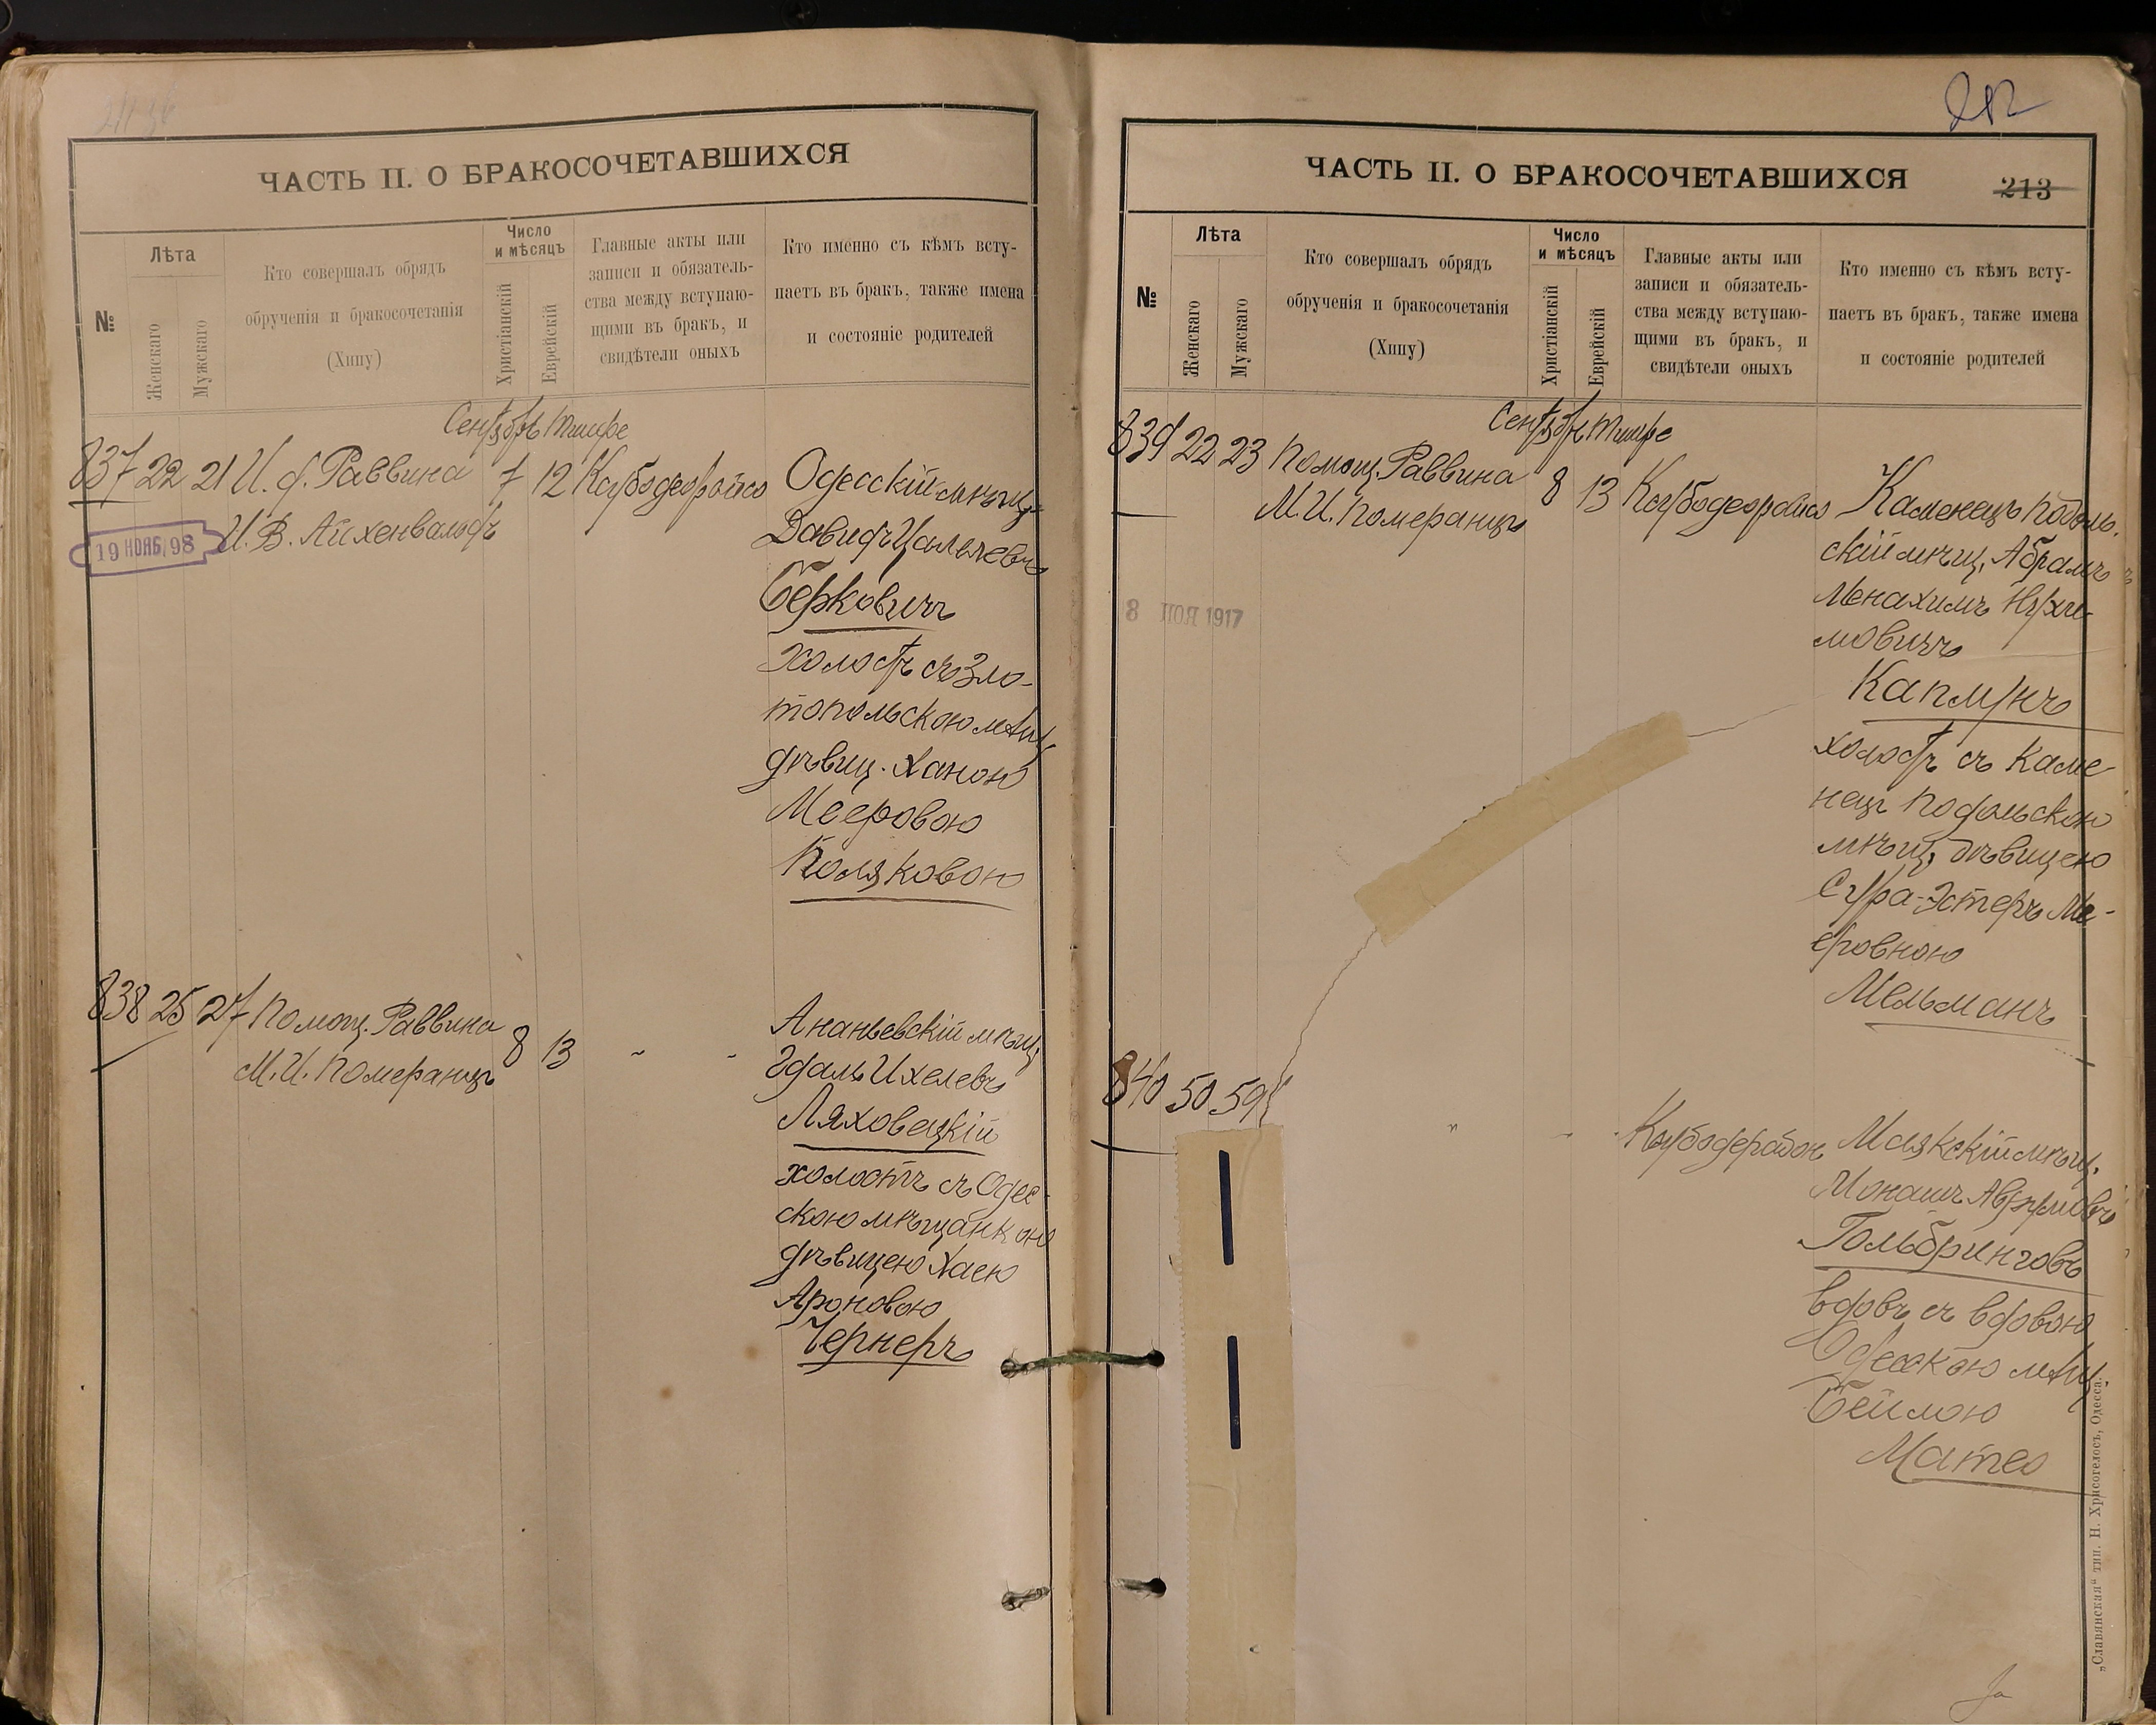 ЧАСТЬ II. О БРАКОСОЧЕТАВШИХСЯ
№
Лѣта
Женскаго
Мужскаго
Кто совершалъ обрядъ
обрученія и бракосочетанія
(Хипу)
Число
и мѣсяцъ
Христіанскій
Еврейскій
Главные акты или
записи и обязатель-
ства между вступаю-
щими въ бракъ, и
свидѣтели оныхъ
Кто именно съ кѣмъ всту-
паетъ въ бракъ, также имена
и состояніе родителей
Сентябрь Тишре
837 22 21 И. д. Раввина 7 12
И. В. Айхенвальдъ
19 НОЯБ 98
Одесскій мѣщ.
Давидъ Цальевъ
Берковичъ
холостъ съ Зло-
топольскою мѣщ.
дѣвиц. Ханою
Мееровою
Поляковою
838 25 27 Помощ. Раввина 8 13 " "
М. И. Померанцъ
Ананьевскій мѣщ.
Эдаль Ихелевъ
Ляховецкій
холостъ съ Одес-
скою мѣщанкою
дѣвицею Хаею
Ароновою
Чернеръ
212
ЧАСТЬ II. О БРАКОСОЧЕТАВШИХСЯ
213
№
Лѣта
Женскаго
Мужскаго
Кто совершалъ обрядъ
обрученія и бракосочетанія
(Хипу)
Число
и мѣсяцъ
Христіанскій
Еврейскій
Главные акты или
записи и обязатель-
ства между вступаю-
щими въ бракъ, и
свидѣтели оныхъ
Кто именно съ кѣмъ всту-
паетъ въ бракъ, также имена
и состояніе родителей
Сентябрь Тишре
839 22 23 Помощ. Раввина 8 13
М. И. Померанцъ
8 НОЯ 1917
Каменецъ Подоль-
скій мѣщ. Абрамъ
Менахимъ Нухи-
мовичъ
Каплунъ
холостъ съ Каме-
нецъ Подольскою
мѣщ. дѣвицею
Сура-Эстеръ Ме-
еровною
Мельманъ
840 50 59 " " "
Маякскій мѣщ.
Монашъ Аврумовъ
Гольбринговъ
вдовъ съ вдовою
Одесскою мѣщ.
Бейлою
Матес
„Славянская“ тип. Н. Хрисогелосъ, Одесса.